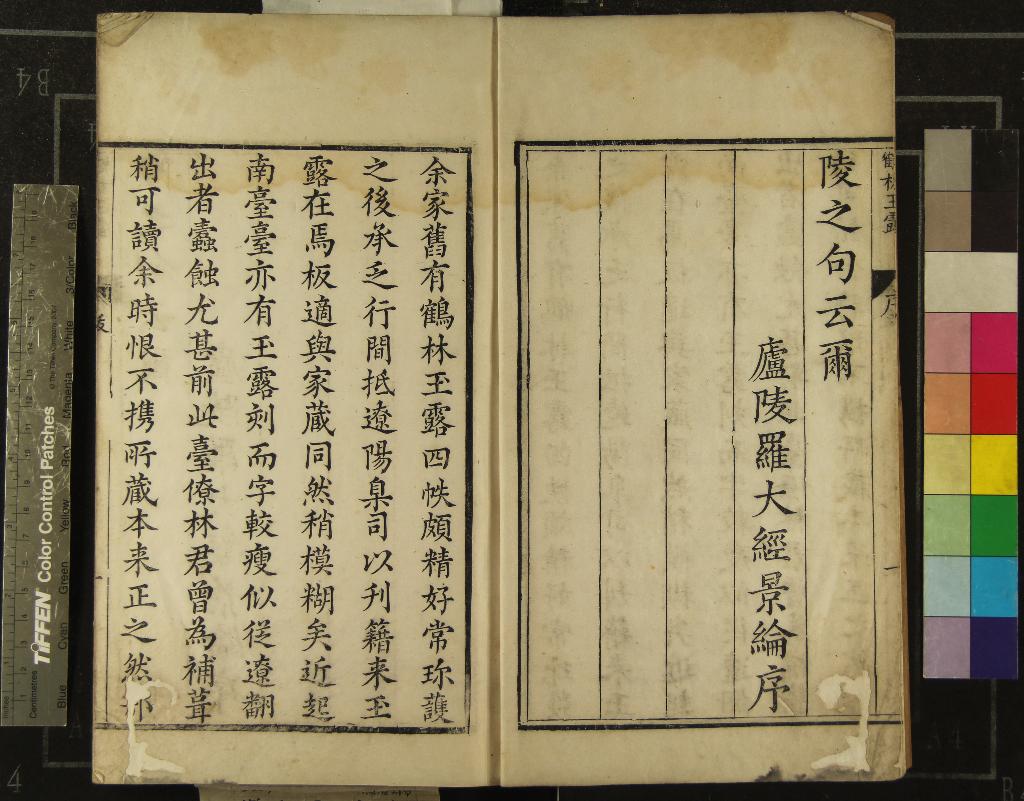 陵之句云爾
廬陵羅大經景綸序
余家舊有鶴林玉露四帙頗精好常珎護
之後承乏行間抵遼陽臬司以刋籍来玉
露在焉板適與家蔵同然稍模糊矣近起
南臺臺亦有玉露刻而字較瘦似従遼翻
出者蠹蝕尤甚前此臺僚林君曾為補葺
稍可讀余時恨不携所蔵本来正之然
鶴林玉露
序
一
TIFFEN Color Control Patches
© The Tiffen Company
Centimetres
Blue
Cyan
Green
Yellow
Red
Magenta
White
3/Color
Black
B4
A4
4